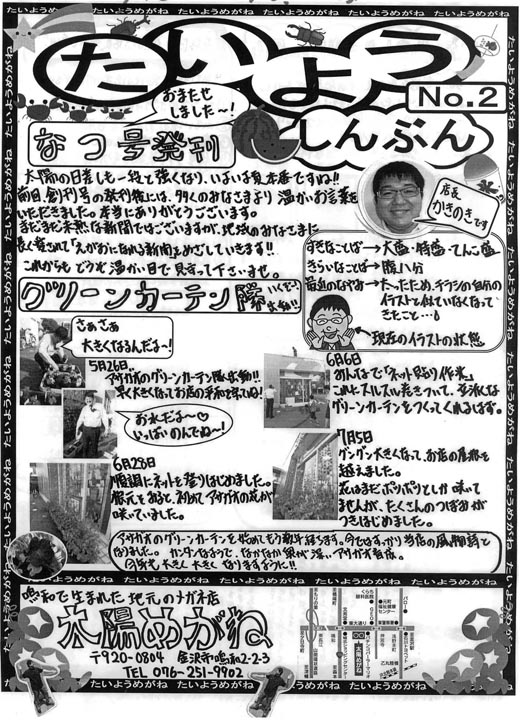 たいようめがね
たいよう
No.2
しんぶん
おまたせ
しました〜!
なつ号発刊
太陽の日差しも一段と強くなり、いよいよ夏本番ですね!!
前回、創刊号の発刊後には、多くのみなさまより温かいお言葉を
いただきました。本当にありがとうございます。
まだまだ未熟な新聞ではございますが、地域のみなさまに
長く愛されて「えがおになれる新聞」をめざしていきます!!
これからもどうぞ温かい目で見守って下さいませ。
店長
かきのきです
すきなことば→大盛・特盛・てんこ盛
きらいなことば→腹八分
最近のなやみ→たったため、チラシの自分の
イラストと似ていなくなって
きたこと…
現在のイラストの状態
グリーンカーテン隊
出動!!
さぁさぁ
大きくなるんだよ〜!
5月26日
アサガオのグリーンカーテン隊出動!!
早く大きくなってお店の平和を守ってね!
お水だよ〜♡
いっぱいのんでね〜!
6月6日
みんなで「ネット貼り作業」
これにスルスル巻きついて、立派な
グリーンカーテンをつくってくれるはず。
6月28日
順調にネットを登りはじめました。
根元をみると、初めてアサガオの花が
咲いていました。
7月5日
グングン大きくなって、お店の屋根を
越えました。
花はまだポツリポツリとしか咲いて
ませんが、たくさんのつぼみが
つきはじめました。
アサガオのグリーンカーテンを始めてもう数年経ちます。今ではすっかり当店の風物詩と
なりました。カンタンなようで、なかなか奥が深いアサガオ栽培。
今年も大きく大きくなりますように!!
鳴和で生まれた地元のメガネ店
太陽めがね
〒920-0804 金沢市鳴和2-2-3
TEL 076-251-9902
太陽めがね